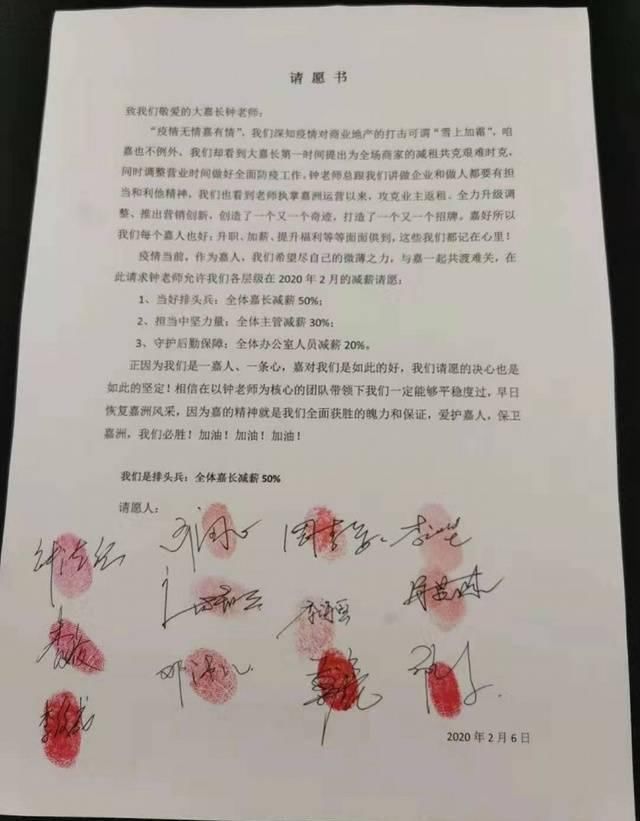 请愿书
致我们敬爱的大嘉长钟老师：
“疫情无情嘉有情”，我们深知疫情对商业地产的打击可谓“雪上加霜”，咱
嘉也不例外，我们却看到大嘉长第一时间提出为全场商家的减租共克艰难时克，
同时调整营业时间做好全面防疫工作。钟老师总跟我们讲做企业和做人都要有担
当和利他精神，我们也看到老师执掌嘉洲运营以来，攻克业主返租、全力升级调
整、推出营销创新，创造了一个又一个奇迹，打造了一个又一个招牌。嘉好所以
我们每个嘉人也好：升职、加薪、提升福利等等面面俱到，这些我们都记在心里！
疫情当前，作为嘉人，我们希望尽自己的微薄之力，与嘉一起共渡难关，在
此请求钟老师允许我们各层级在 2020 年 2 月的减薪请愿：
1、当好排头兵：全体嘉长减薪 50%；
2、担当中坚力量：全体主管减薪 30%；
3、守护后勤保障：全体办公室人员减薪 20%。
正因为我们是一嘉人、一条心，嘉对我们是如此的好，我们请愿的决心也是
如此的坚定！相信在以钟老师为核心的团队带领下我们一定能够平稳度过，早日
恢复嘉洲风采，因为嘉的精神就是我们全面获胜的魄力和保证，爱护嘉人，保卫
嘉洲，我们必胜！加油！加油！加油！
我们是排头兵：全体嘉长减薪 50%
请愿人：
2020 年 2 月 6 日